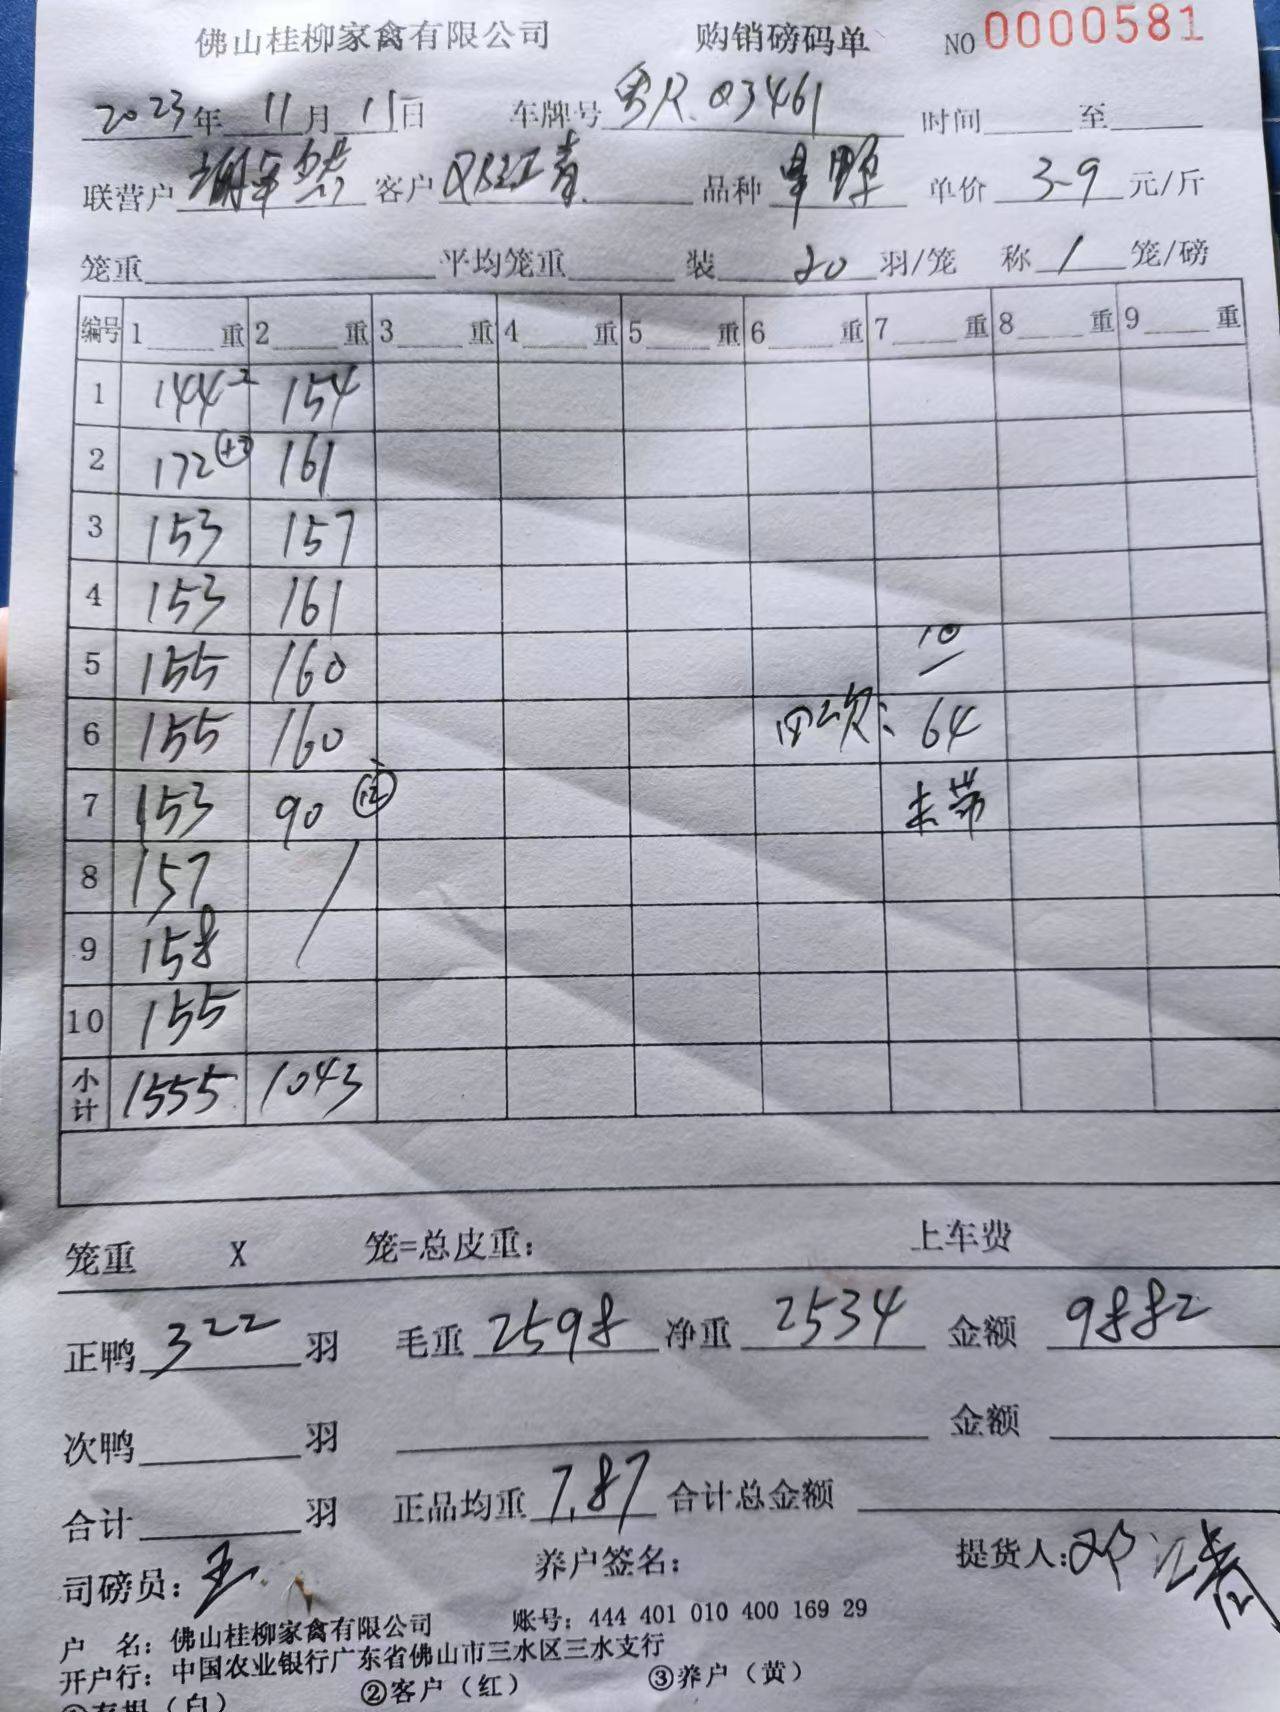 佛山桂柳家禽有限公司 购销磅码单 NO 0000581
2023年 11月 11日 车牌号 粤R.Q3461 时间 至
联营户 客户 邓江青 品种 单价 3-9 元/斤
笼重 平均笼重 装 20 羽/笼 称 1 笼/磅
编号 1 重 2 重 3 重 4 重 5 重 6 重 7 重 8 重 9 重
1 144 -2 154
2 172 +2 161
3 153 157
4 153 161
5 155 160 10
6 155 160 四次: 64
7 153 90 12 未带
8 157
9 158
10 155
小计 1555 1043
笼重 X 笼=总皮重: 上车费
正鸭 322 羽 毛重 2598 净重 2534 金额 9882
次鸭 羽 金额
合计 羽 正品均重 7.87 合计总金额
司磅员: 养户签名: 提货人: 邓江青
户 名: 佛山桂柳家禽有限公司 账号: 444 401 010 400 169 29
开户行: 中国农业银行广东省佛山市三水区三水支行
①存根（白） ②客户（红） ③养户（黄）